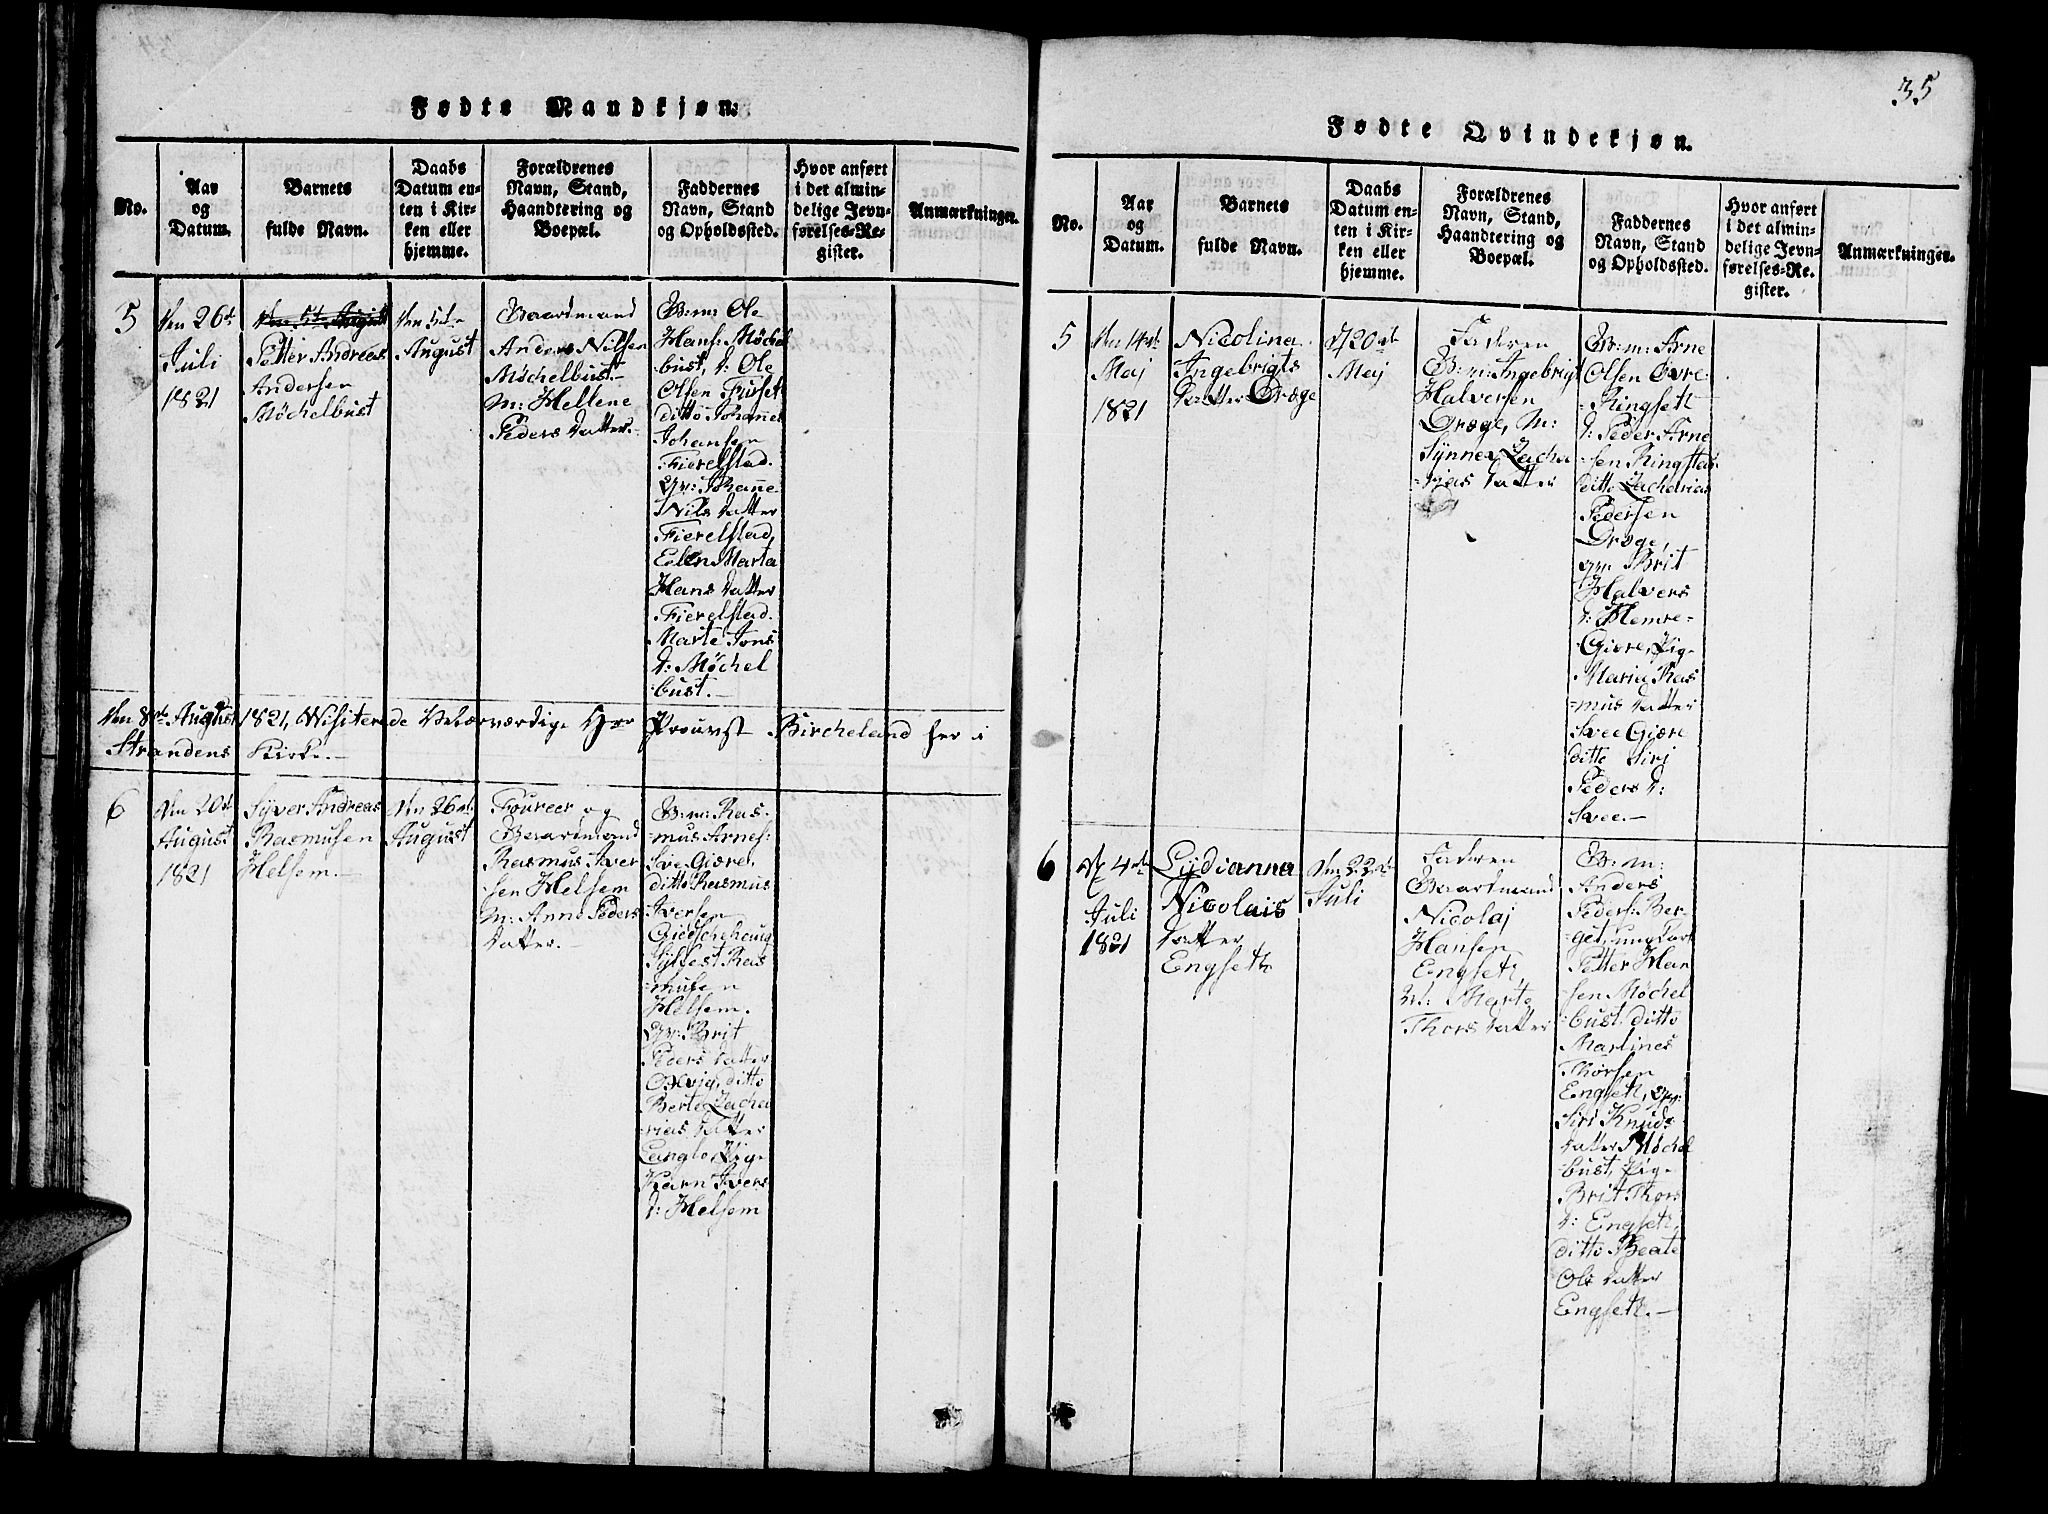 Fødte Mandkjøn.
No.
Aar
og
Datum.
Barnets
fulde Navn.
Daabs
Datum en-
ten i Kir-
ken eller
hjemme.
Forældrenes
Navn, Stand,
Haandtering og
Boepæl.
Faddernes
Navn, Stand
og Opholdssted.
Hvor anført
i det almin-
delige Jevn-
førelses-Re-
gister.
Anmærkninger.
5
den 26de
Juli
1821
den 5te August
Petter Andreas
Andersen
Møchelbust
den 5te
August
Gaardmand
Anders Nilsen
Møchelbust.
M: Hellene
Peders datter.
G:m: Ole
Hans: Møchel
bust, d: Ole
Olsen Fuset
ditto Johannes
Johansen
Fierelstad.
Gv: Johanne
Nils datter
Fierelstad,
Ellen Marta
Hans datter
Fierelstad.
Marte Jons
d: Møchel
bust.
den 8de August 1821, Wisiterede Velærværdige Hr Prouvst Bircheland her i
Strandens Kirke.
6
den 20de
August
1821
Syver Andreas
Rasmusen
Helsem.
den 26de
August
Foureer og
Gaardmand
Rasmus Iver
sen Helsem
M: Anne Peders
datter.
G:m: Ras-
mus Arnes:
Sve Giære,
ditto Rasmus
Iversen
Giedschehaug
Sylfest Ras
musen
Helsem.
Gv: Brit
Peders datter
Oxvig, ditto
Berte Zacha
rias datter
Langlo, Pige
Karn Ivers
d: Helsem
35
Fødte Qvindekjøn.
No.
Aar
og
Datum.
Barnets
fulde Navn.
Daabs
Datum en-
ten i Kir-
ken eller
hjemme.
Forældrenes
Navn, Stand,
Haandtering og
Boepæl.
Faddernes
Navn, Stand
og Opholdssted.
Hvor anført
i det almin-
delige Jevn-
førelses-Re-
gister.
Anmærkninger.
5
den 14de
Maj
1821
Nicolina
Ingebrigts
datter Drøge
d 20de
Maj
Faderen
G:m: Ingebrigt
Halversen
Drøge, M:
Synnev Zacha
-rias datter
G:m: Arne
Olsen Øvre
-Ringsett
d: Peder Arne
sen Ringstad
ditto Zacharias
Pedersen
Drøge,
gv: Brit
Halvers
d: Hemre-
Giære, Pig-
Maria Ras
-mus datter
Svee Giøre
ditto Siri
Peders d:
Svee.
6
d 4de
Juli
1821
Lydianna
Nicolais
datter
Engseth
den 22de
Juli
Faderen
Gaardmand
Nicolaj
Hansen
Engseth,
M: Marte
Thors datter
G:m:
Anders
Peders: Ber-
get, ungkarl
Petter Han
sen Møchel
bust. ditto
Martines
Thorsen
Engseth, Gv:
Siri Knuds
datter Møchel
bust, Pige
Brit Thors
d: Engseth,
ditto Beate
Ols datter
Engseth.